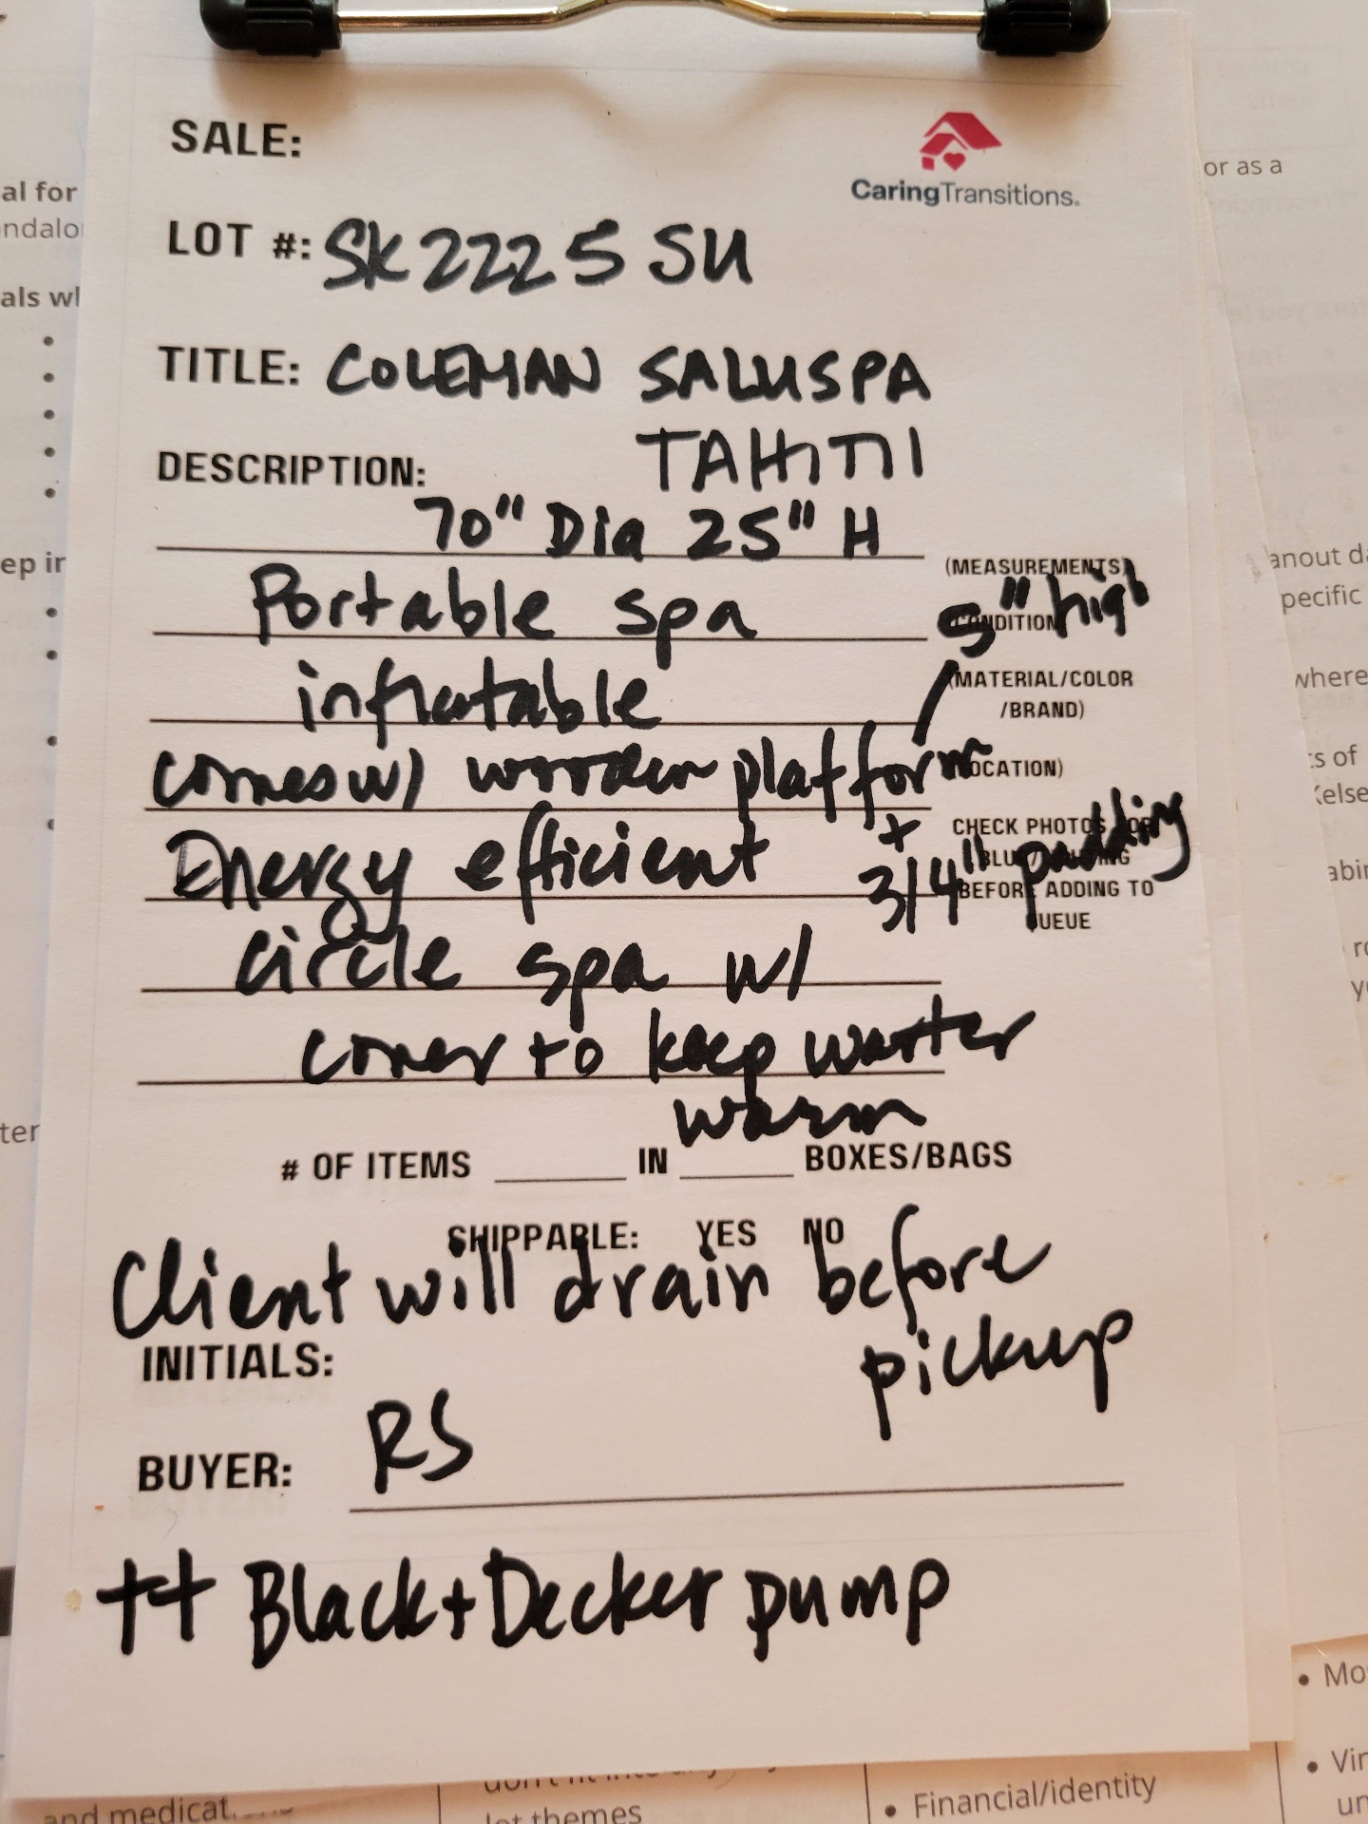 SALE:
CaringTransitions.
LOT #: SK2225 SU
TITLE: COLEMAN SALUSPA
TAHITI
DESCRIPTION:
70" Dia 25" H
(MEASUREMENTS)
Portable spa
5" high
(CONDITION
inflatable
(MATERIAL/COLOR
/BRAND)
comes w/ wooden platform
OCATION)
+
3/4" padding
CHECK PHOTOS
Energy efficient
BEFORE ADDING TO
UEUE
circle spa w/
cover to keep water
warm
# OF ITEMS ______ IN ______ BOXES/BAGS
SHIPPABLE: YES NO
Client will drain before
pickup
INITIALS:
RS
BUYER:
++ Black+Decker pump
or as a
al for
als wl
ep in
where
pecific
and medicat
lot themes
• Financial/identity